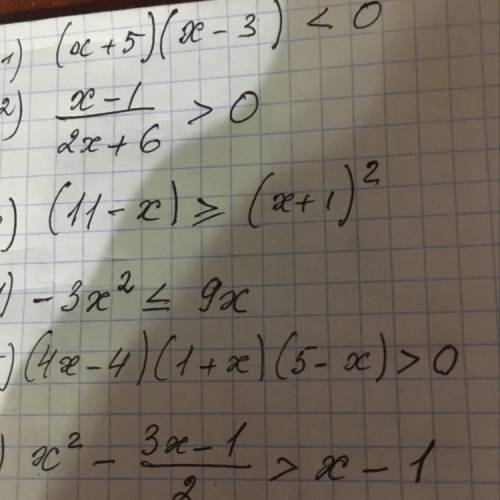 1) (x+5)(x-3) < 0
2) \frac{x-1}{2x+6} > 0
) (11-x) ≥ (x+1)^2
) -3x^2 ≤ 9x
) (4x-4)(1+x)(5-x) > 0
) x^2 - \frac{3x-1}{2} > x-1